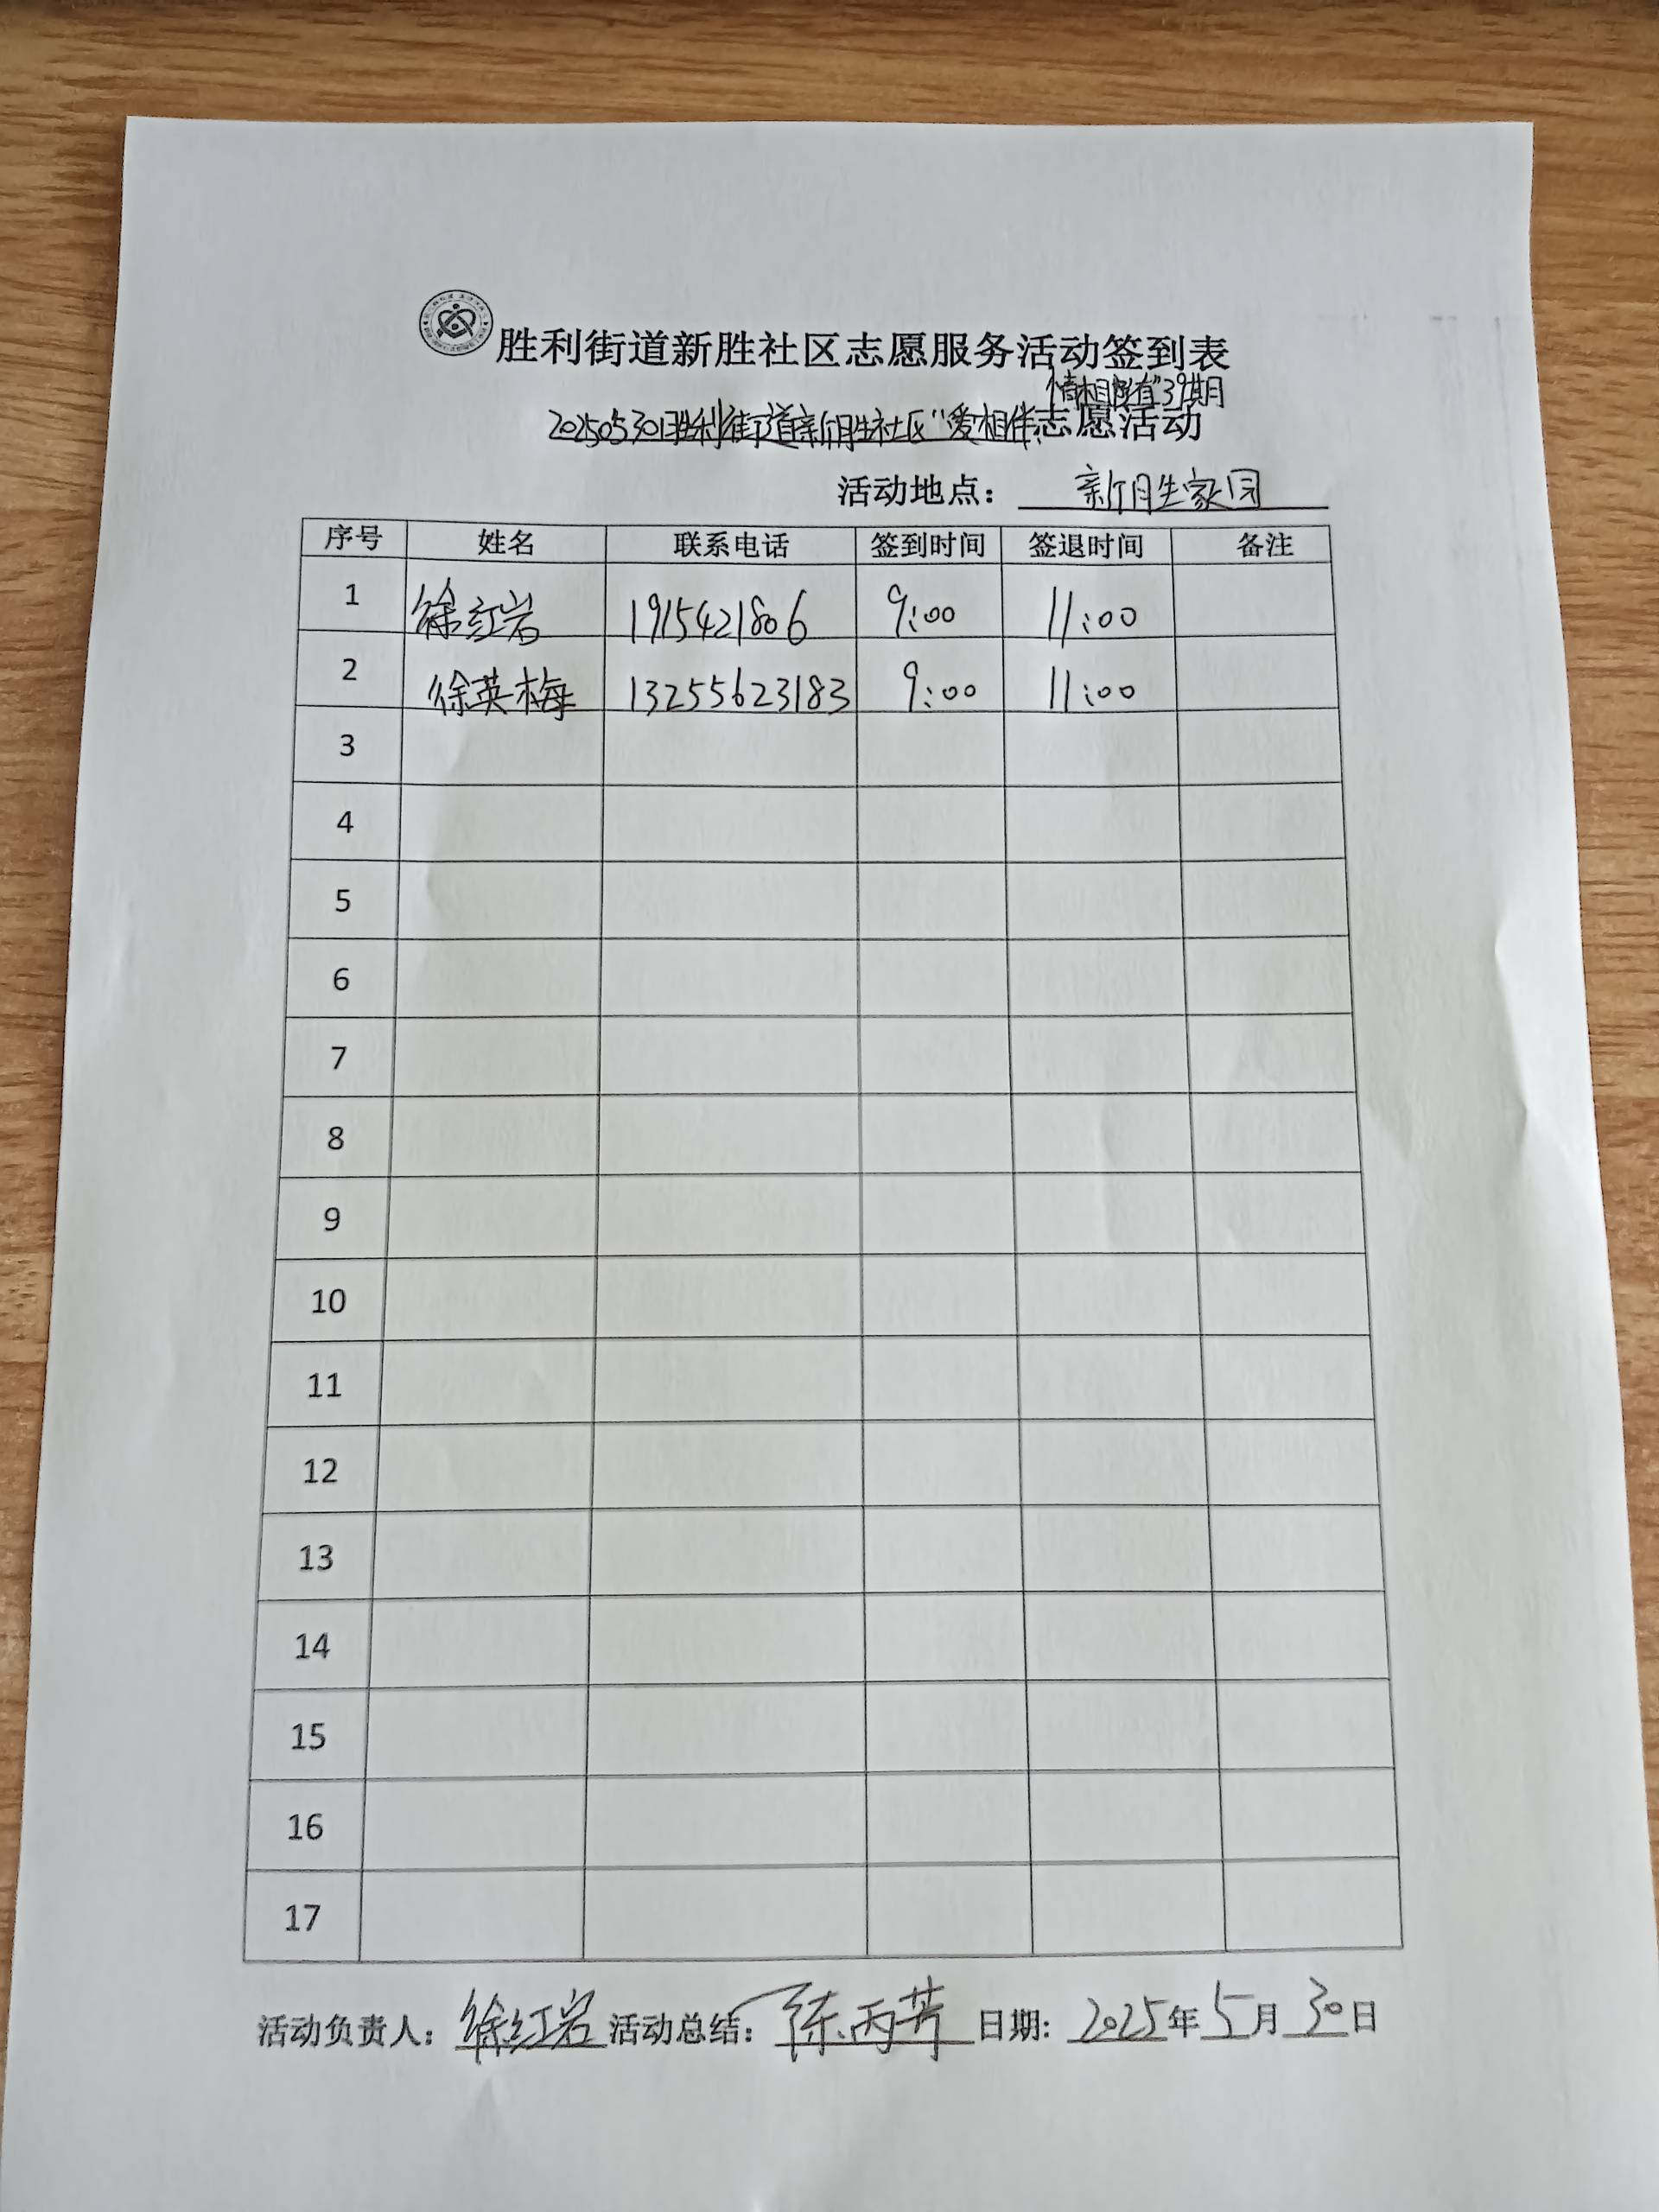 胜利街道新胜社区志愿服务活动签到表
情相随有"39期
20250530胜利街道新胜社区"爱相伴、志愿活动
活动地点: 新胜家园
序号 姓名 联系电话 签到时间 签退时间 备注
1 徐红岩 1915421806 9:00 11:00
2 徐英梅 13255623183 9:00 11:00
3
4
5
6
7
8
9
10
11
12
13
14
15
16
17
活动负责人: 徐红岩 活动总结: 陈丙芳 日期: 2025年5月30日